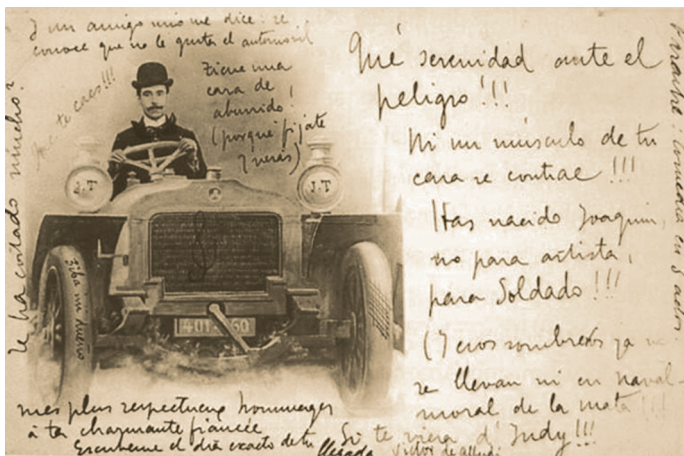 Y un amigo mio me dice: se
conoce que no le gusta el automovil
Tiene una
cara de
aburrido!
(porqué fijate
y verás)
te caes!!!
J.T
J.T
401 60
Te ha costado mucho?
mi dueño
Qué serenidad ante el
peligro!!!
Ni un músculo de tu
cara se contrae!!!
Has nacido Joaquin,
no para artista,
para Soldado!!!
(Y esos sombreros ya no
se llevan ni en naval-
moral de la mata!!!
Si te viera d'Indy!!!
mes plus respectueux hommages
à ta charmante fiancée
Escribeme el dia exacto de tu llegada
comedia en 3 actos.